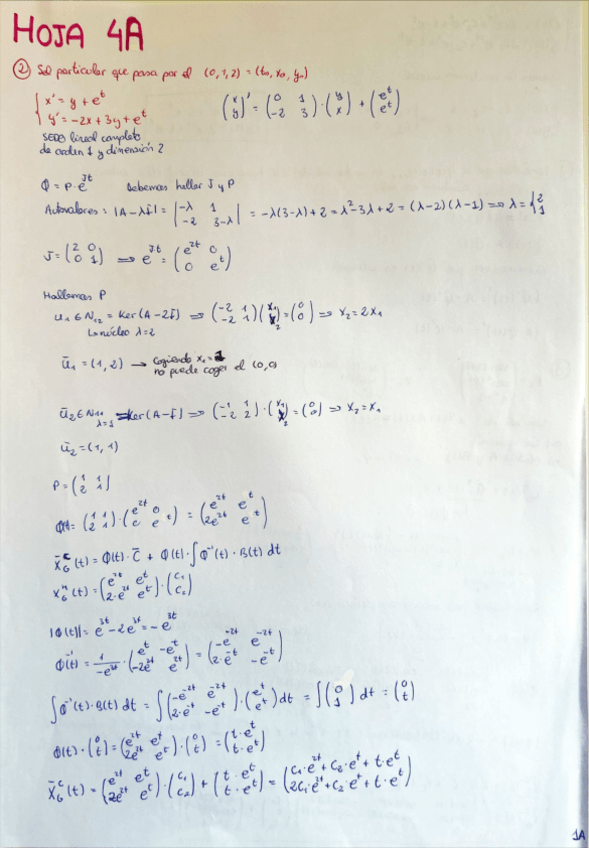 HOJA 4A
② Sol particular que pasa por el (0,1,2) = (t₀, x₀, y₀)
{ x' = y + eᵗ
{ y' = -2x + 3y + eᵗ
(x y)' = (0 1; -2 3) · (y x) + (eᵗ eᵗ)
SEDO lineal completo
de orden 1 y dimensión 2
Φ = P · e^{Jt} Debemos hallar J y P
Autovalores: |A - λI| = |-λ 1; -2 3-λ| = -λ(3-λ) + 2 = λ² - 3λ + 2 = (λ-2)(λ-1) ⇒ λ = { 2 1
J = (2 0; 0 1) ⇒ e^{Jt} = (e^{2t} 0; 0 eᵗ)
Hallemos P
u₁ ∈ N₁₂ = Ker(A - 2I) ⇒ (-2 1; -2 1) (x₁ x₂) = (0 0) ⇒ x₂ = 2x₁
Lo núcleo λ=2
ū₁ = (1, 2) → Cogiendo x₁ = 1
no puede coger el (0,0)
ū₂ ∈ N₁₁ = Ker(A - I) ⇒ (-1 1; -2 2) · (x₁ x₂) = (0 0) ⇒ x₂ = x₁
λ=1
ū₂ = (1, 1)
P = (1 1; 2 1)
Φ(t) = (1 1; 2 1) · (e^{2t} 0; 0 eᵗ) = (e^{2t} eᵗ; 2e^{2t} eᵗ)
x̄_G^C(t) = Φ(t) · C̄ + Φ(t) · ∫ Φ⁻¹(t) · B(t) dt
x_G^H(t) = (e^{2t} eᵗ; 2·e^{2t} eᵗ) · (c₁ c₂)
|Φ(t)| = e^{3t} - 2e^{3t} = -e^{3t}
Φ⁻¹(t) = 1/-e^{3t} · (eᵗ -eᵗ; -2e^{2t} e^{2t}) = (-e^{-2t} e^{-2t}; 2·e^{-t} -e^{-t})
∫ Φ⁻¹(t) · B(t) dt = ∫ (-e^{-2t} e^{-2t}; 2·e^{-t} -e^{-t}) · (eᵗ eᵗ) dt = ∫ (0 1) dt = (0 t)
Φ(t) · (0 t) = (e^{2t} eᵗ; 2e^{2t} eᵗ) · (0 t) = (t·eᵗ t·eᵗ)
x̄_G^C(t) = (e^{2t} eᵗ; 2e^{2t} eᵗ) · (c₁ c₂) + (t·eᵗ t·eᵗ) = (c₁·e^{2t} + c₂·eᵗ + t·eᵗ; 2c₁·e^{2t} + c₂·eᵗ + t·eᵗ)
1A